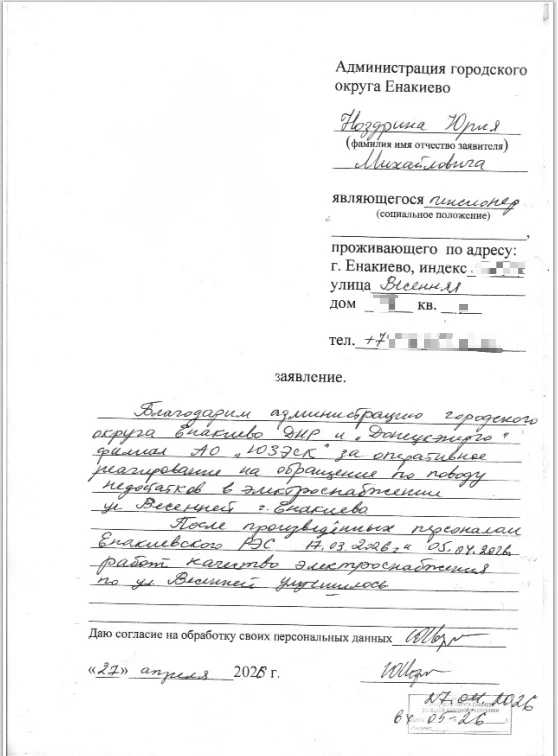 Администрация городского
округа Енакиево
Ноздрина Юрия
(фамилия имя отчество заявителя)
Михайловича
являющегося пенсионер
(социальное положение)
проживающего по адресу:
г. Енакиево, индекс
улица Весенняя
дом кв.
тел. +7
заявление.
Благодарим администрацию городского
округа Енакиево ДНР и „Донецкэнерго"
филиал АО „ЮЗЭСК" за оперативное
реагирование на обращение по поводу
недостатков в электроснабжении
ул Весенней г. Енакиево
После произведённых персоналом
Енакиевского РЭС 17.03.2026г и 05.04.2026
работ качество электроснабжения
по ул Весенней улучшилось
Даю согласие на обработку своих персональных данных
«27» апреля 2026 г.
27.04.2026
05-26